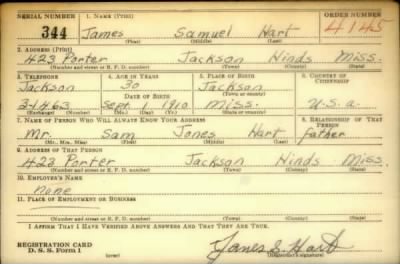 SERIAL NUMBER 1. NAME (Print) ORDER NUMBER
344 James Samuel Hart 4145
(First) (Middle) (Last)
2. ADDRESS (Print)
423 Porter Jackson Hinds Miss.
(Number and street or R. F. D. number) (Town) (County) (State)
3. TELEPHONE 4. AGE IN YEARS 5. PLACE OF BIRTH 6. COUNTRY OF CITIZENSHIP
Jackson 30 Jackson
DATE OF BIRTH (Town or county)
3-1463 Sept 1 1910 Miss. U.S.a.
(Exchange) (Number) (Mo.) (Day) (Yr.) (State or country)
7. NAME OF PERSON WHO WILL ALWAYS KNOW YOUR ADDRESS 8. RELATIONSHIP OF THAT PERSON
Mr. Sam Jones Hart father
(Mr., Mrs., Miss) (First) (Middle) (Last)
9. ADDRESS OF THAT PERSON
423 Porter Jackson Hinds Miss.
(Number and street or R. F. D. number) (Town) (County) (State)
10. EMPLOYER'S NAME
none
11. PLACE OF EMPLOYMENT OR BUSINESS
(Number and street or R. F. D. number) (Town) (County) (State)
I AFFIRM THAT I HAVE VERIFIED ABOVE ANSWERS AND THAT THEY ARE TRUE.
REGISTRATION CARD
D. S. S. Form 1 (over) James S. Hart
(Registrant's signature)